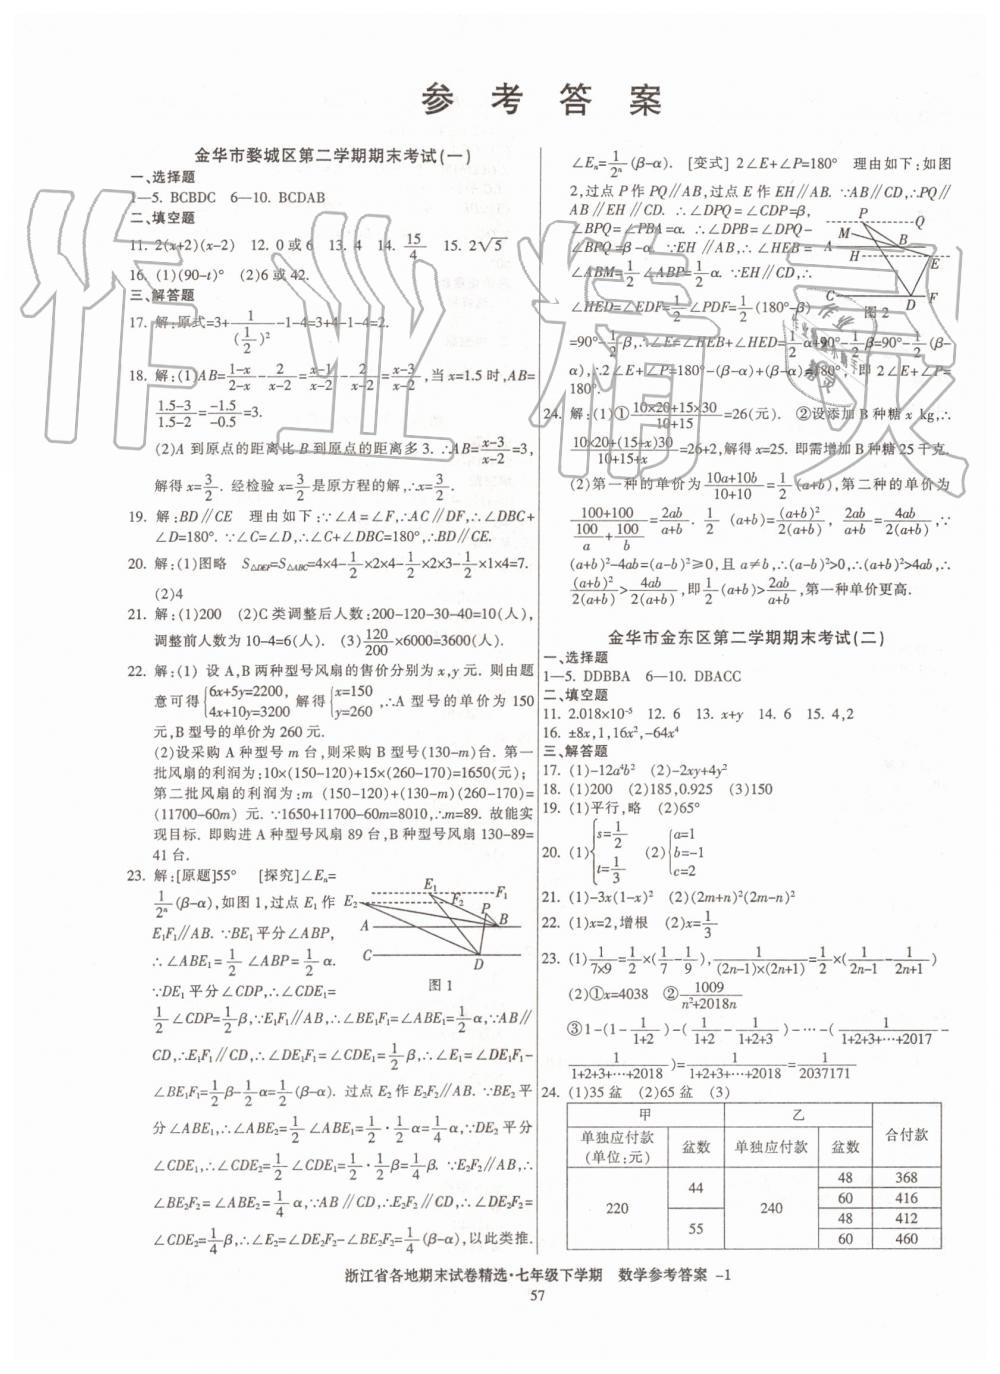 参考答案
金华市婺城区第二学期期末考试(一)
一、选择题
1—5. BCBDC 6—10. BCDAB
二、填空题
11. 2(x+2)(x-2) 12. 0或6 13. 4 14. 15/4 15. 2√5
16. (1)(90-t)° (2)6或42.
三、解答题
17. 解:原式=3+1/(1/2)²-1-4=3+4-1-4=2.
18. 解:(1)AB=(1-x)/(2-x)-2/(x-2)=(x-1)/(x-2)-2/(x-2)=(x-3)/(x-2),当x=1.5时,AB=
(1.5-3)/(1.5-2)=(-1.5)/(-0.5)=3.
(2)A到原点的距离比B到原点的距离多3. ∴AB=(x-3)/(x-2)=3,
解得x=3/2. 经检验x=3/2是原方程的解,∴x=3/2.
19. 解:BD∥CE 理由如下:∵∠A=∠F,∴AC∥DF,∴∠DBC+
∠D=180°. ∵∠C=∠D,∴∠C+∠DBC=180°,∴BD∥CE.
20. 解:(1)图略 S△DEF=S△ABC=4×4-1/2×2×4-1/2×2×3-1/2×1×4=7.
(2)4
21. 解:(1)200 (2)C类调整后人数:200-120-30-40=10(人),
调整前人数为10-4=6(人). (3)120/200×6000=3600(人).
22. 解:(1) 设A,B两种型号风扇的售价分别为x,y元. 则由题
意可得{6x+5y=2200, 4x+10y=3200 解得{x=150 y=260 ,∴A型号的单价为150
元,B型号的单价为260元.
(2)设采购A种型号m台,则采购B型号(130-m)台. 第一
批风扇的利润为:10×(150-120)+15×(260-170)=1650(元);
第二批风扇的利润为:m (150-120)+(130-m)(260-170)=
(11700-60m) 元. ∵1650+11700-60m=8010,∴m=89. 故能实
现目标. 即购进A种型号风扇89台,B种型号风扇130-89=
41台.
23. 解:[原题]55° [探究]∠Eₙ=
1/2ⁿ(β-α),如图1,过点E₁作
E₁F₁∥AB. ∵BE₁平分∠ABP,
∴∠ABE₁=1/2∠ABP=1/2α.
∵DE₁平分∠CDP,∴∠CDE₁=
E₁ F₁
E₂ F₂
P
A B
C
D
图1
1/2∠CDP=1/2β,∵E₁F₁∥AB,∴∠BE₁F₁=∠ABE₁=1/2α,∵AB∥
CD,∴E₁F₁∥CD,∴∠DE₁F₁=∠CDE₁=1/2β,∴∠E₁=∠DE₁F₁-
∠BE₁F₁=1/2β-1/2α=1/2(β-α). 过点E₂作E₂F₂∥AB. ∵BE₂平
分∠ABE₁,∴∠ABE₂=1/2∠ABE₁=1/2·1/2α=1/4α,∵DE₂平分
∠CDE₁,∴∠CDE₂=1/2∠CDE₁=1/2·1/2β=1/4β. ∵E₂F₂∥AB,∴
∠BE₂F₂=∠ABE₂=1/4α,∵AB∥CD,∴E₂F₂∥CD,∴∠DE₂F₂=
∠CDE₂=1/4β,∴∠E₂=∠DE₂F₂-∠BE₂F₂=1/4(β-α),以此类推.
∠Eₙ=1/2ⁿ(β-α). [变式] 2∠E+∠P=180° 理由如下:如图
2,过点P作PQ∥AB,过点E作EH∥AB. ∵AB∥CD,∴PQ∥
AB∥EH∥CD. ∴∠DPQ=∠CDP=β,
∠BPQ=∠PBA=α. ∴∠DPB=∠DPQ-
∠BPQ=β-α. ∵EH∥AB,∴∠HEB=
∠ABM=1/2∠ABP=1/2α. ∵EH∥CD,∴
∠HED=∠EDF=1/2∠PDF=1/2(180°-β)
P Q
M
A B
H E
C D F
图2
=90°-1/2β,∴∠E=∠HEB+∠HED=1/2α+90°-1/2β=90°-1/2(β-
α),∴2∠E+∠P=180°-(β-α)+(β-α)=180°, 即2∠E+∠P=
180°.
24. 解:(1)①(10×20+15×30)/(10+15)=26(元). ②设添加B种糖x kg,∴
(10×20+(15+x)30)/(10+15+x)=26+2,解得x=25. 即需增加B种糖25千克.
(2)第一种的单价为(10a+10b)/(10+10)=1/2(a+b),第二种的单价为
(100+100)/(100/a+100/b)=2ab/(a+b). 1/2(a+b)=(a+b)²/2(a+b), 2ab/(a+b)=4ab/2(a+b),∵
(a+b)²-4ab=(a-b)²≥0,且a≠b,∴(a-b)²>0,∴(a+b)²>4ab,∴
(a+b)²/2(a+b)>4ab/2(a+b),即1/2(a+b)>2ab/(a+b),第一种单价更高.
金华市金东区第二学期期末考试(二)
一、选择题
1—5. DDBBA 6—10. DBACC
二、填空题
11. 2.018×10⁻⁵ 12. 6 13. x+y 14. 6 15. 4,2
16. ±8x,1,16x²,-64x⁴
三、解答题
17. (1)-12a⁴b² (2)-2xy+4y²
18. (1)200 (2)185,0.925 (3)150
19. (1)平行,略 (2)65°
20. (1){s=1/2 t=1/3 (2){a=1 b=-1 c=2
21. (1)-3x(1-x)² (2)(2m+n)²(2m-n)²
22. (1)x=2,增根 (2)x=1/3
23. (1)1/(7×9)=1/2×(1/7-1/9),1/((2n-1)×(2n+1))=1/2×(1/(2n-1)-1/(2n+1))
(2)①x=4038 ②1009/(n²+2018n)
③1-(1-1/(1+2))-(1/(1+2)-1/(1+2+3))-…-(1/(1+2+3+…+2017)-
1/(1+2+3+…+2018))=1/(1+2+3+…+2018)=1/2037171
24. (1)35盆 (2)65盆 (3)
甲 乙 合付款
单独应付款(单位:元) 盆数 单独应付款 盆数
220 44 240 48 368
60 416
55 48 412
60 460
浙江省各地期末试卷精选·七年级下学期 数学参考答案 -1
57
作业精灵